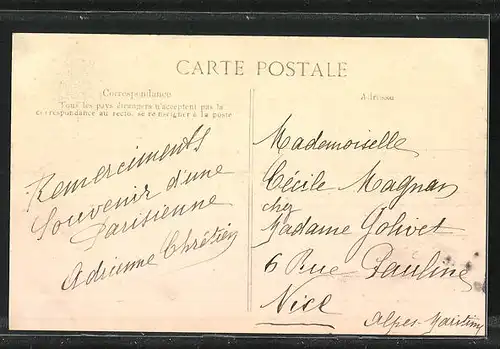 CARTE POSTALE
Correspondance
Tous les pays étrangers n'acceptent pas la
correspondance au recto, se renseigner à la poste
Remerciments
Souvenir d'une
Parisienne
Adrienne Chrétien
Adresse
Mademoiselle
Cécile Magnan
chez
Madame Golivet
6 Rue Pauline
Nice
Alpes-Maritim